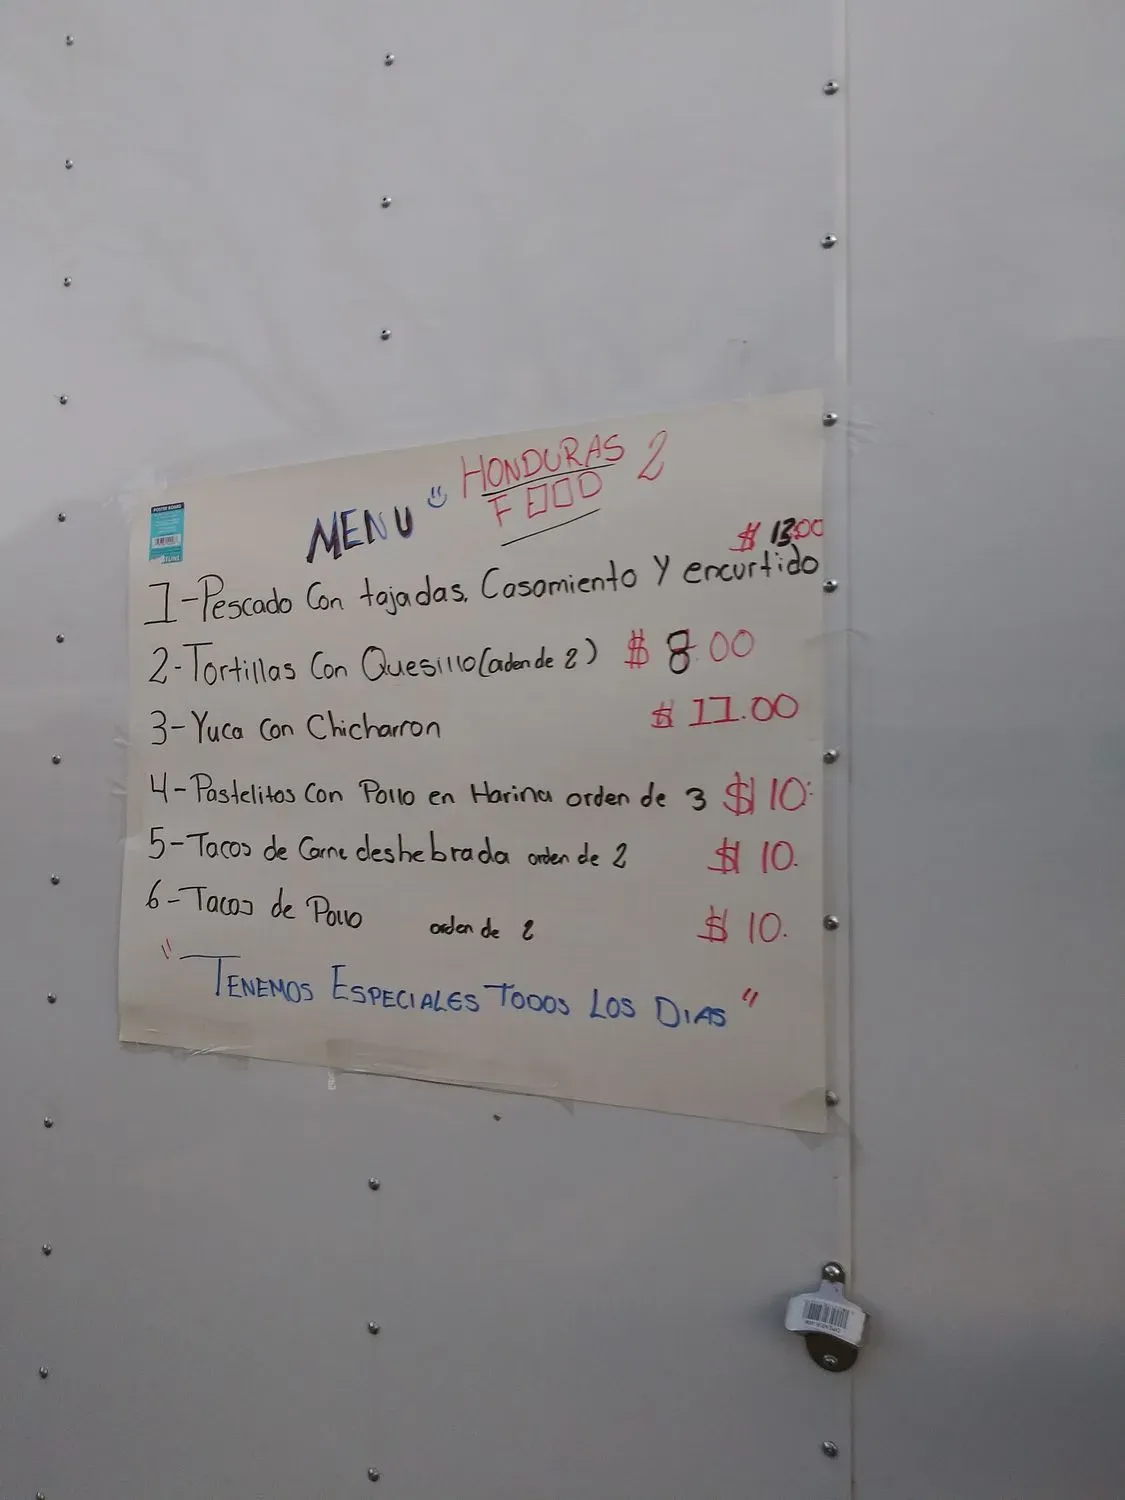 HONDURAS 2
MENU FOOD
$ 13.00
1-Pescado Con tajadas, Casamiento Y encurtido
2-Tortillas Con Quesillo (orden de 2) $ 8.00
3-Yuca con Chicharron $ 11.00
4-Pastelitos Con Pollo en Harina orden de 3 $ 10.
5-Tacos de Carne deshebrada orden de 2 $ 10.
6-Tacos de Pollo orden de 2 $ 10.
"TENEMOS ESPECIALES TODOS LOS DIAS"
POSTER BOARD